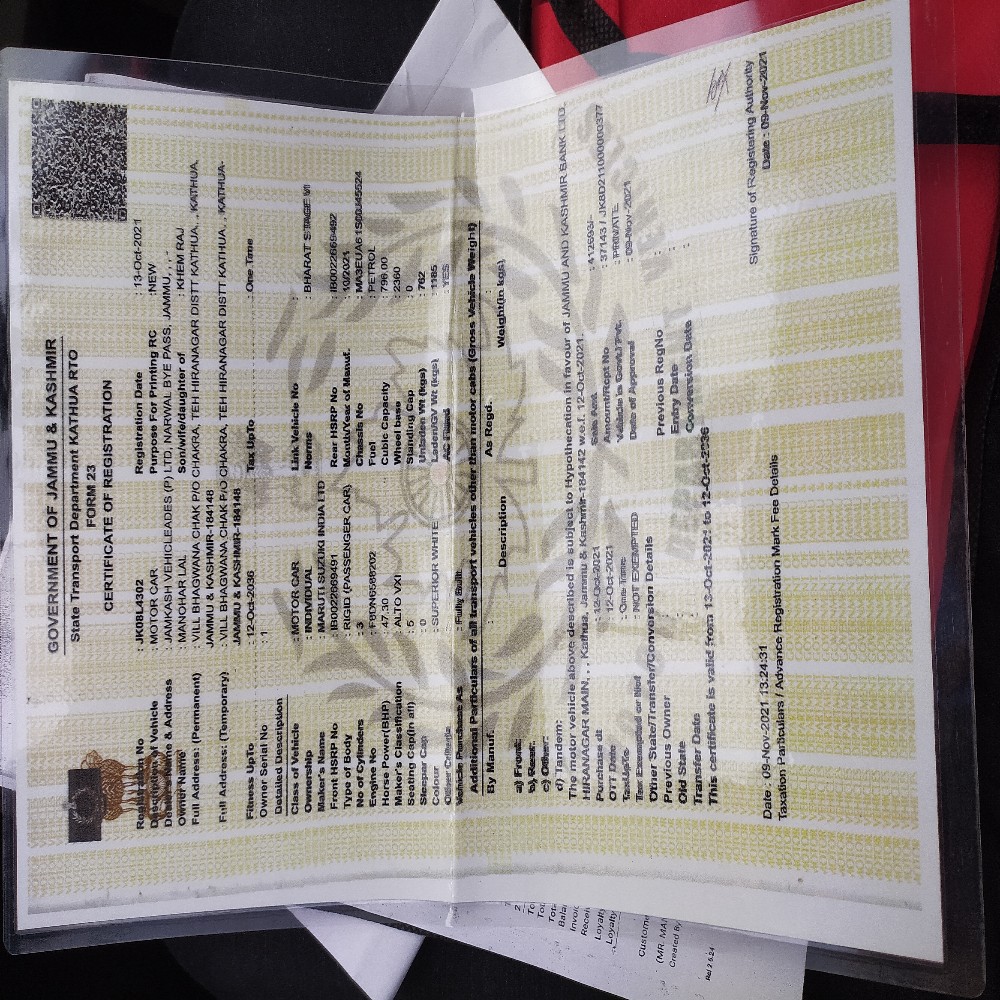 GOVERNMENT OF JAMMU & KASHMIR
State Transport Department KATHUA RTO
FORM 23
CERTIFICATE OF REGISTRATION
Registration No : JK08L4302 Registration Date : 13-Oct-2021
Description of Vehicle : MOTOR CAR Purpose For Printing RC : NEW
Dealer's Name & Address : JAMKASH VEHICLEADES (P) LTD, NARWAL BYE PASS, JAMMU, , , -
Owner Name : MANOHAR LAL Son/wife/daughter of : KHEM RAJ
Full Address: (Permanent) : VILL BHAGWANA CHAK P/O CHAKRA, TEH HIRANAGAR DISTT KATHUA, , KATHUA,
JAMMU & KASHMIR-184148
Full Address: (Temporary) : VILL BHAGWANA CHAK P/O CHAKRA, TEH HIRANAGAR DISTT KATHUA, , KATHUA-
JAMMU & KASHMIR-184148
Fitness UpTo : 12-Oct-2036 Tax UpTo : One Time
Owner Serial No : 1
Detailed Description
Class of Vehicle : MOTOR CAR Link Vehicle No
Ownership : INDIVIDUAL Norms : BHARAT STAGE VI
Maker's Name : MARUTI SUZUKI INDIA LTD
Front HSRP No : IB0022669491 Rear HSRP No : IB0022669492
Type of Body : RIGID (PASSENGER CAR) Month/Year of Manuf. : 10/2021
No of Cylinders : 3 Chassis No : MA3EUA61S00J45524
Engine No : F8DN6588202 Fuel : PETROL
Horse Power(BHP) : 47.30 Cubic Capacity : 796.00
Maker's Classification : ALTO VXI Wheel base : 2360
Seating Cap(in all) : 5 Standing Cap : 0
Sleeper Cap : 0 Unladen Wt (kgs) : 762
Colour : SUPERIOR WHITE Laden/GV Wt (kgs) : 1185
Other Criteria : YES
Vehicle Purchase As : Fully Built
Additional Particulars of all transport vehicles other than motor cabs (Gross Vehicle Weight)
By Manuf. As Regd.
Description Weight(in kgs)
a) Front:
b) Rear:
c) Other:
d) Tandem:
The motor vehicle above described is subject to Hypothecation in favour of JAMMU AND KASHMIR BANK LTD,
HIRANAGAR MAIN, , , Kathua, Jammu & Kashmir-184142 w.e.f. 12-Oct-2021.
Purchase dt : 12-Oct-2021 Sale Amt : 412693/-
OTT Date : 12-Oct-2021 Amount/Rcpt No : 37143 / JK8D21100000377
TaxUpTo : One Time Vehicle is Govt./Pvt. : PRIVATE
Tax Exempted or Not : NOT EXEMPTED Date of Approval : 09-Nov-2021
Other State/Transfer/Conversion Details
Previous Owner Previous RegNo
Old State Entry Date
Transfer Date Conversion Date
This certificate is valid from 13-Oct-2021 to 12-Oct-2036
Signature of Registering Authority
Date : 09-Nov-2021 13:24:31 Date : 09-Nov-2021
Taxation Particulars / Advance Registration Mark Fee Details
Invoi
Recei
Loyalty
Loyalty
Custome
(MR. MA
Created By
Rel 2.6.24